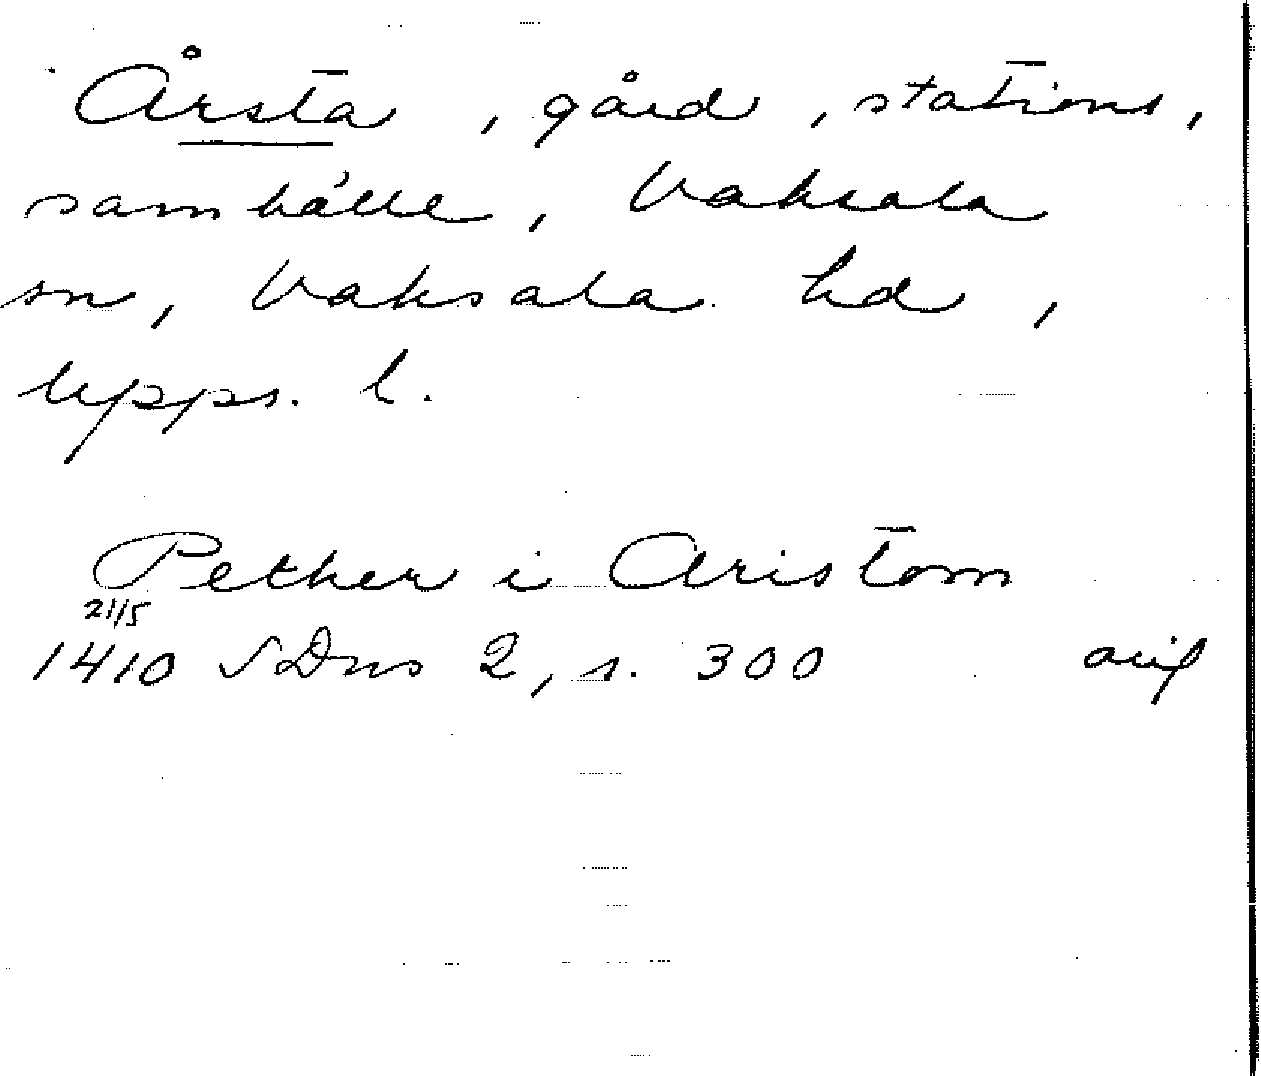 Årsta, gård, stations,
samhälle, Vaksala
sn, Vaksala hd,
Upps. l.
Pether i Aristom
21/5
1410 SDns 2, s. 300